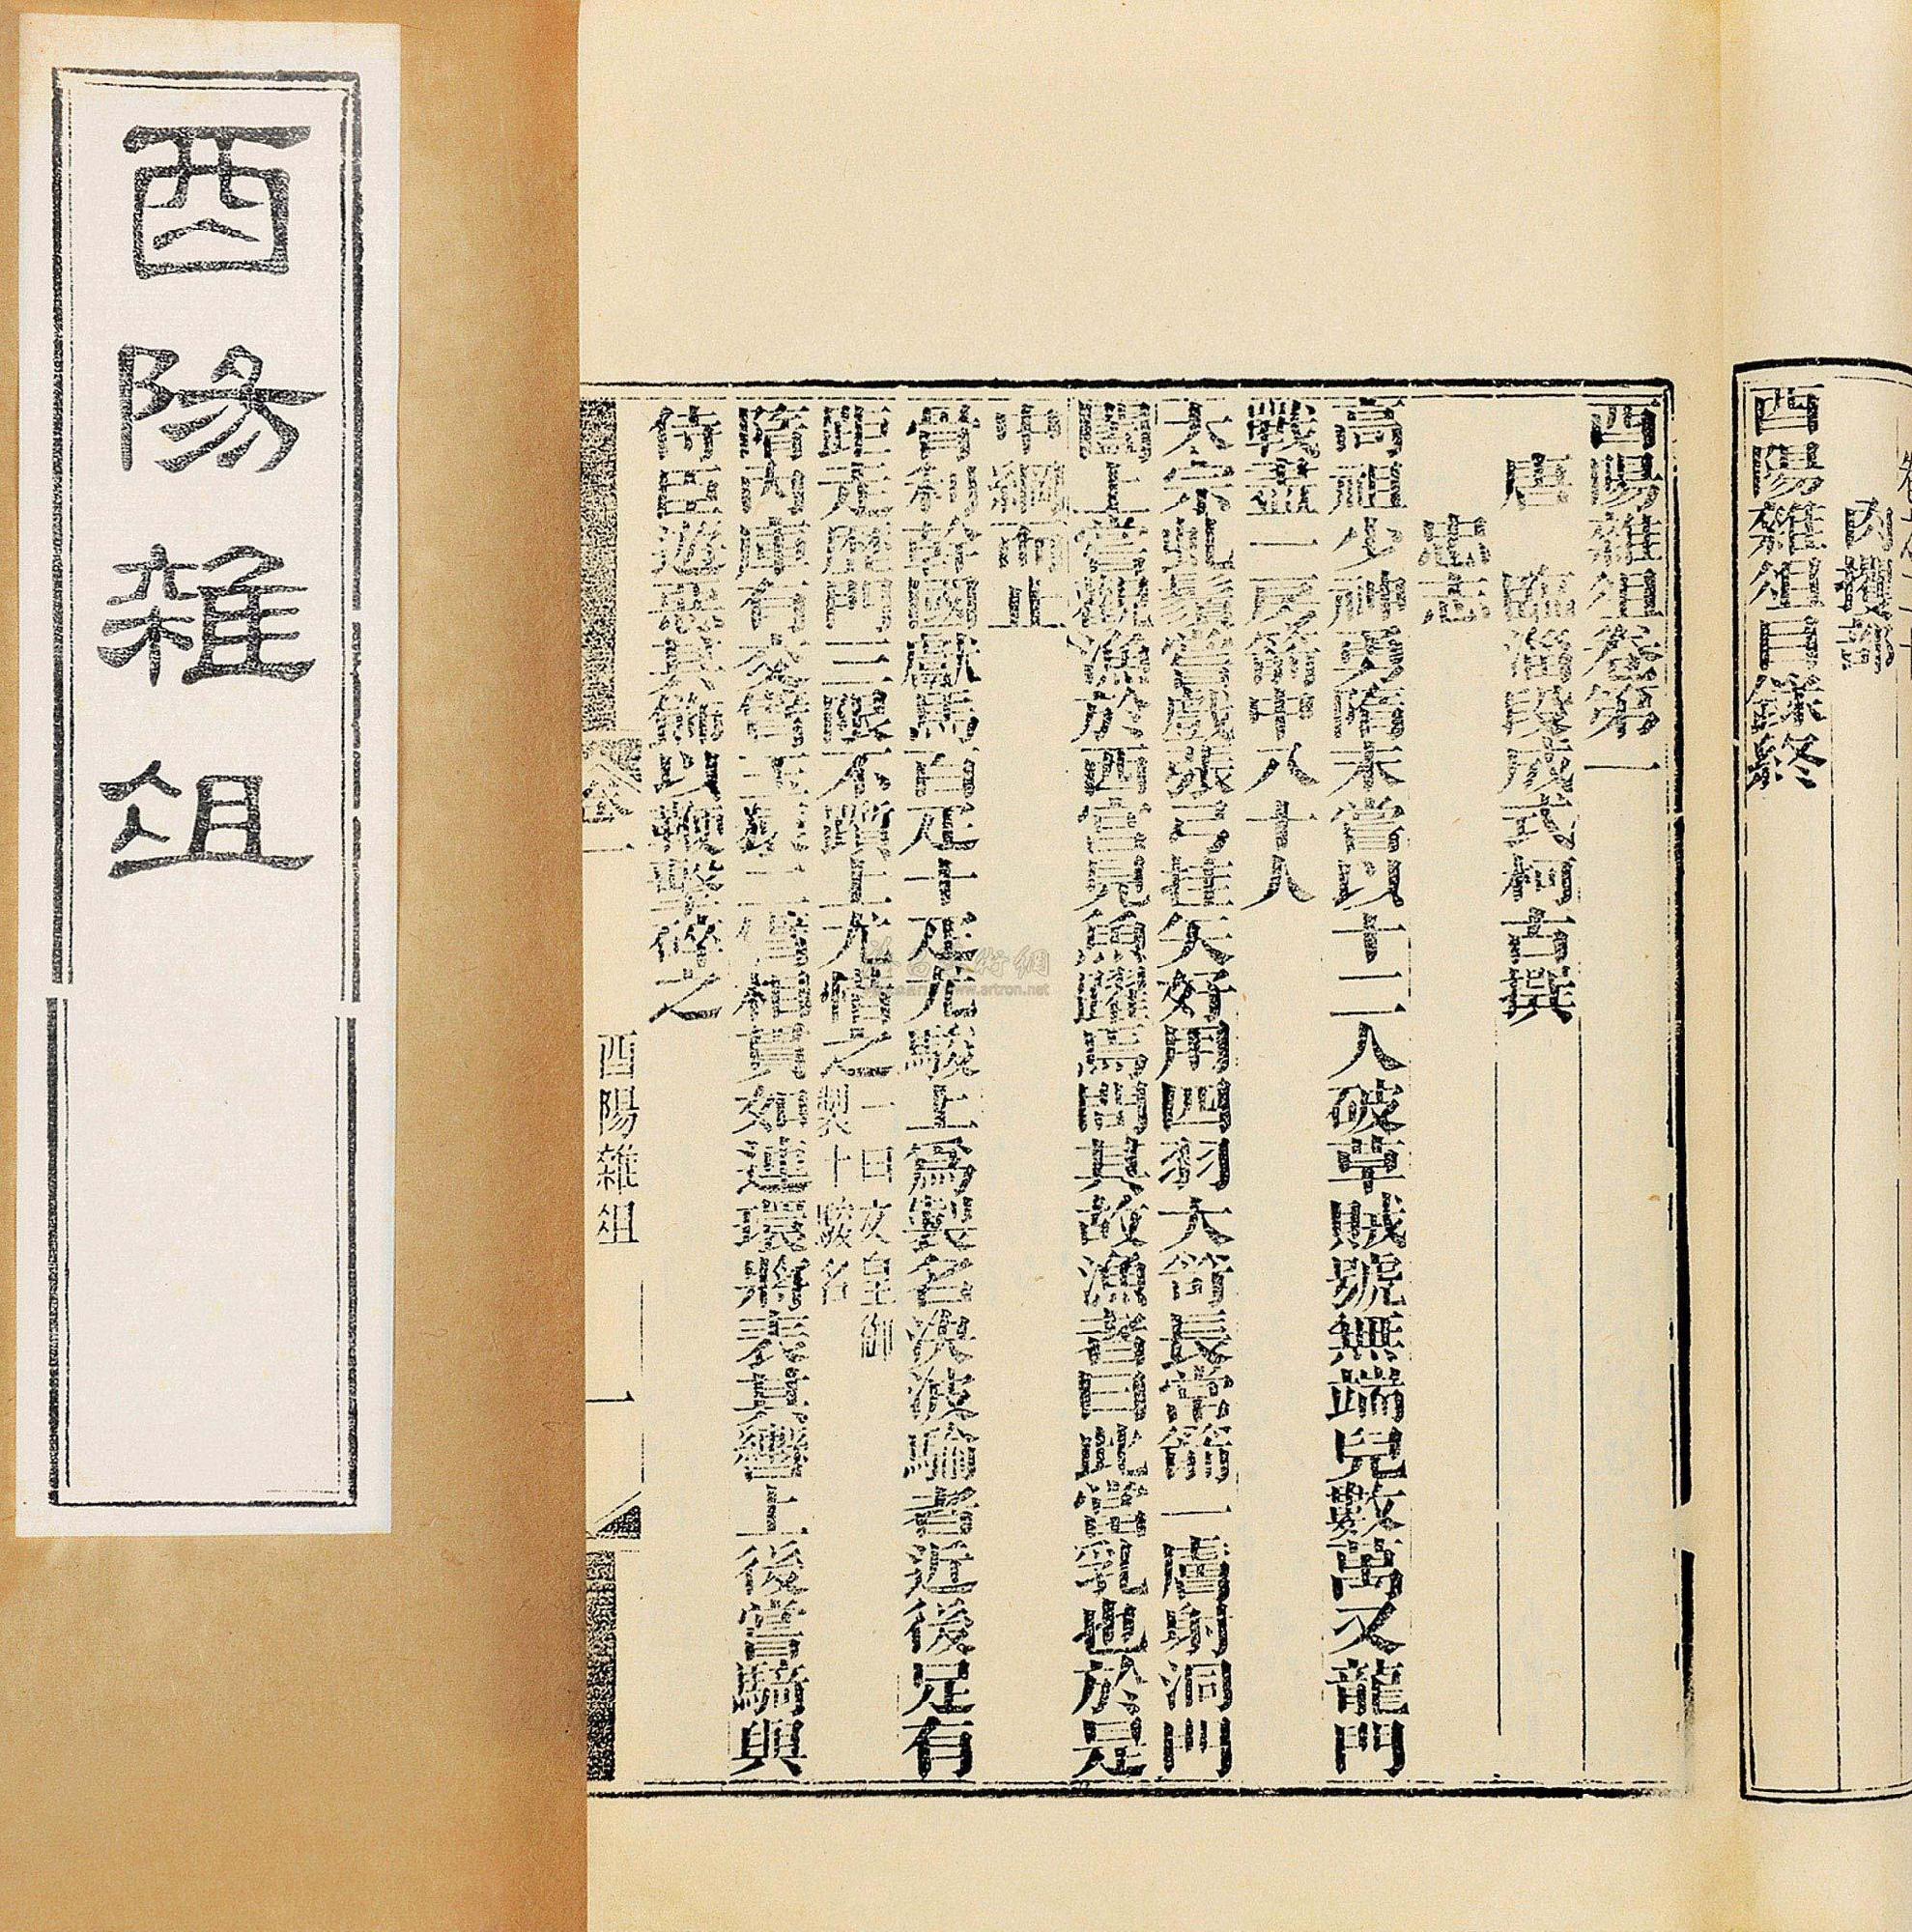 酉陽雜俎
內攫部
酉陽雜俎目錄終
酉陽雜俎卷第一
唐 臨淄段成式柯古撰
忠志
高祖少神勇隋末嘗以十二人破草賊號無端兒數萬又龍門
戰盡一房箭中八十人
太宗虬鬚嘗戲張弓挂矢好用四羽大笴長常箭一膚射洞門
闔上嘗觀漁於西宮見魚躍焉問其故漁者曰此當乳也於是
中綱而止
骨利幹國獻馬百疋十疋尤駿上爲製名決波騟者近後足有
距走歷門三限不躓上尤惜之一曰文皇御製十駿名
隋內庫有交臂玉猨二臂相貫如連環將表其轡上後嘗騎與
侍臣遊惡其飾以鞭擊碎之
卷一
酉陽雜俎
一
www.artron.net